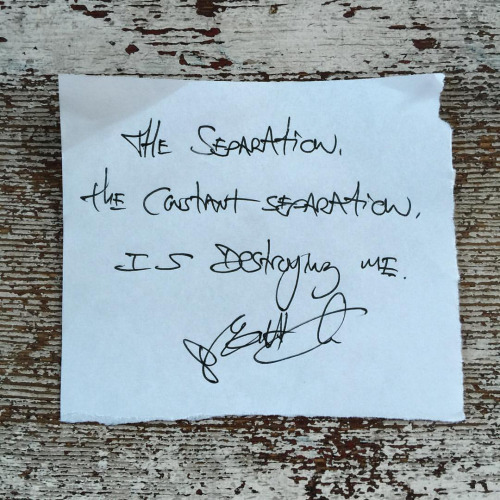 THE SEPARATION.
THE CONSTANT SEPARATION.
IS DESTROYING ME.